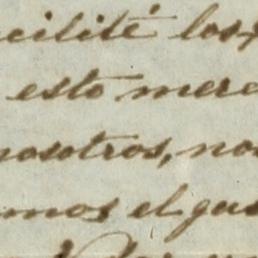 cilité los
esto mere
nosotros, nos
mos el gus